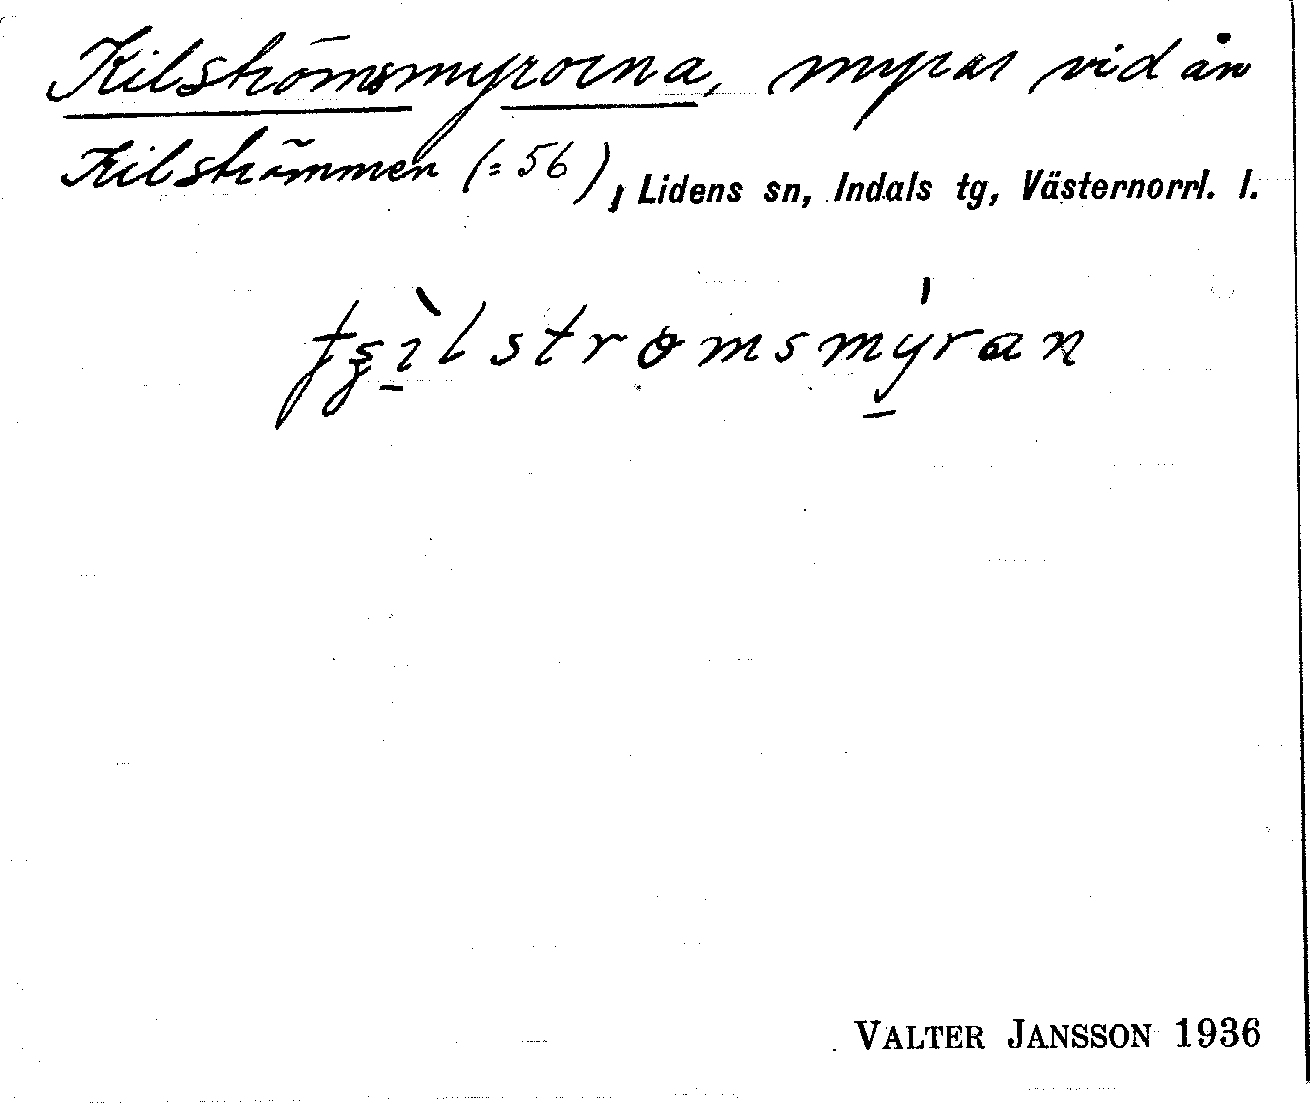 Kilströmsmyrorna, myrar vid ån
Kilströmmen (= 56), Lidens sn, Indals tg, Västernorrl. l.
tʂìlstrømsmýran
VALTER JANSSON 1936